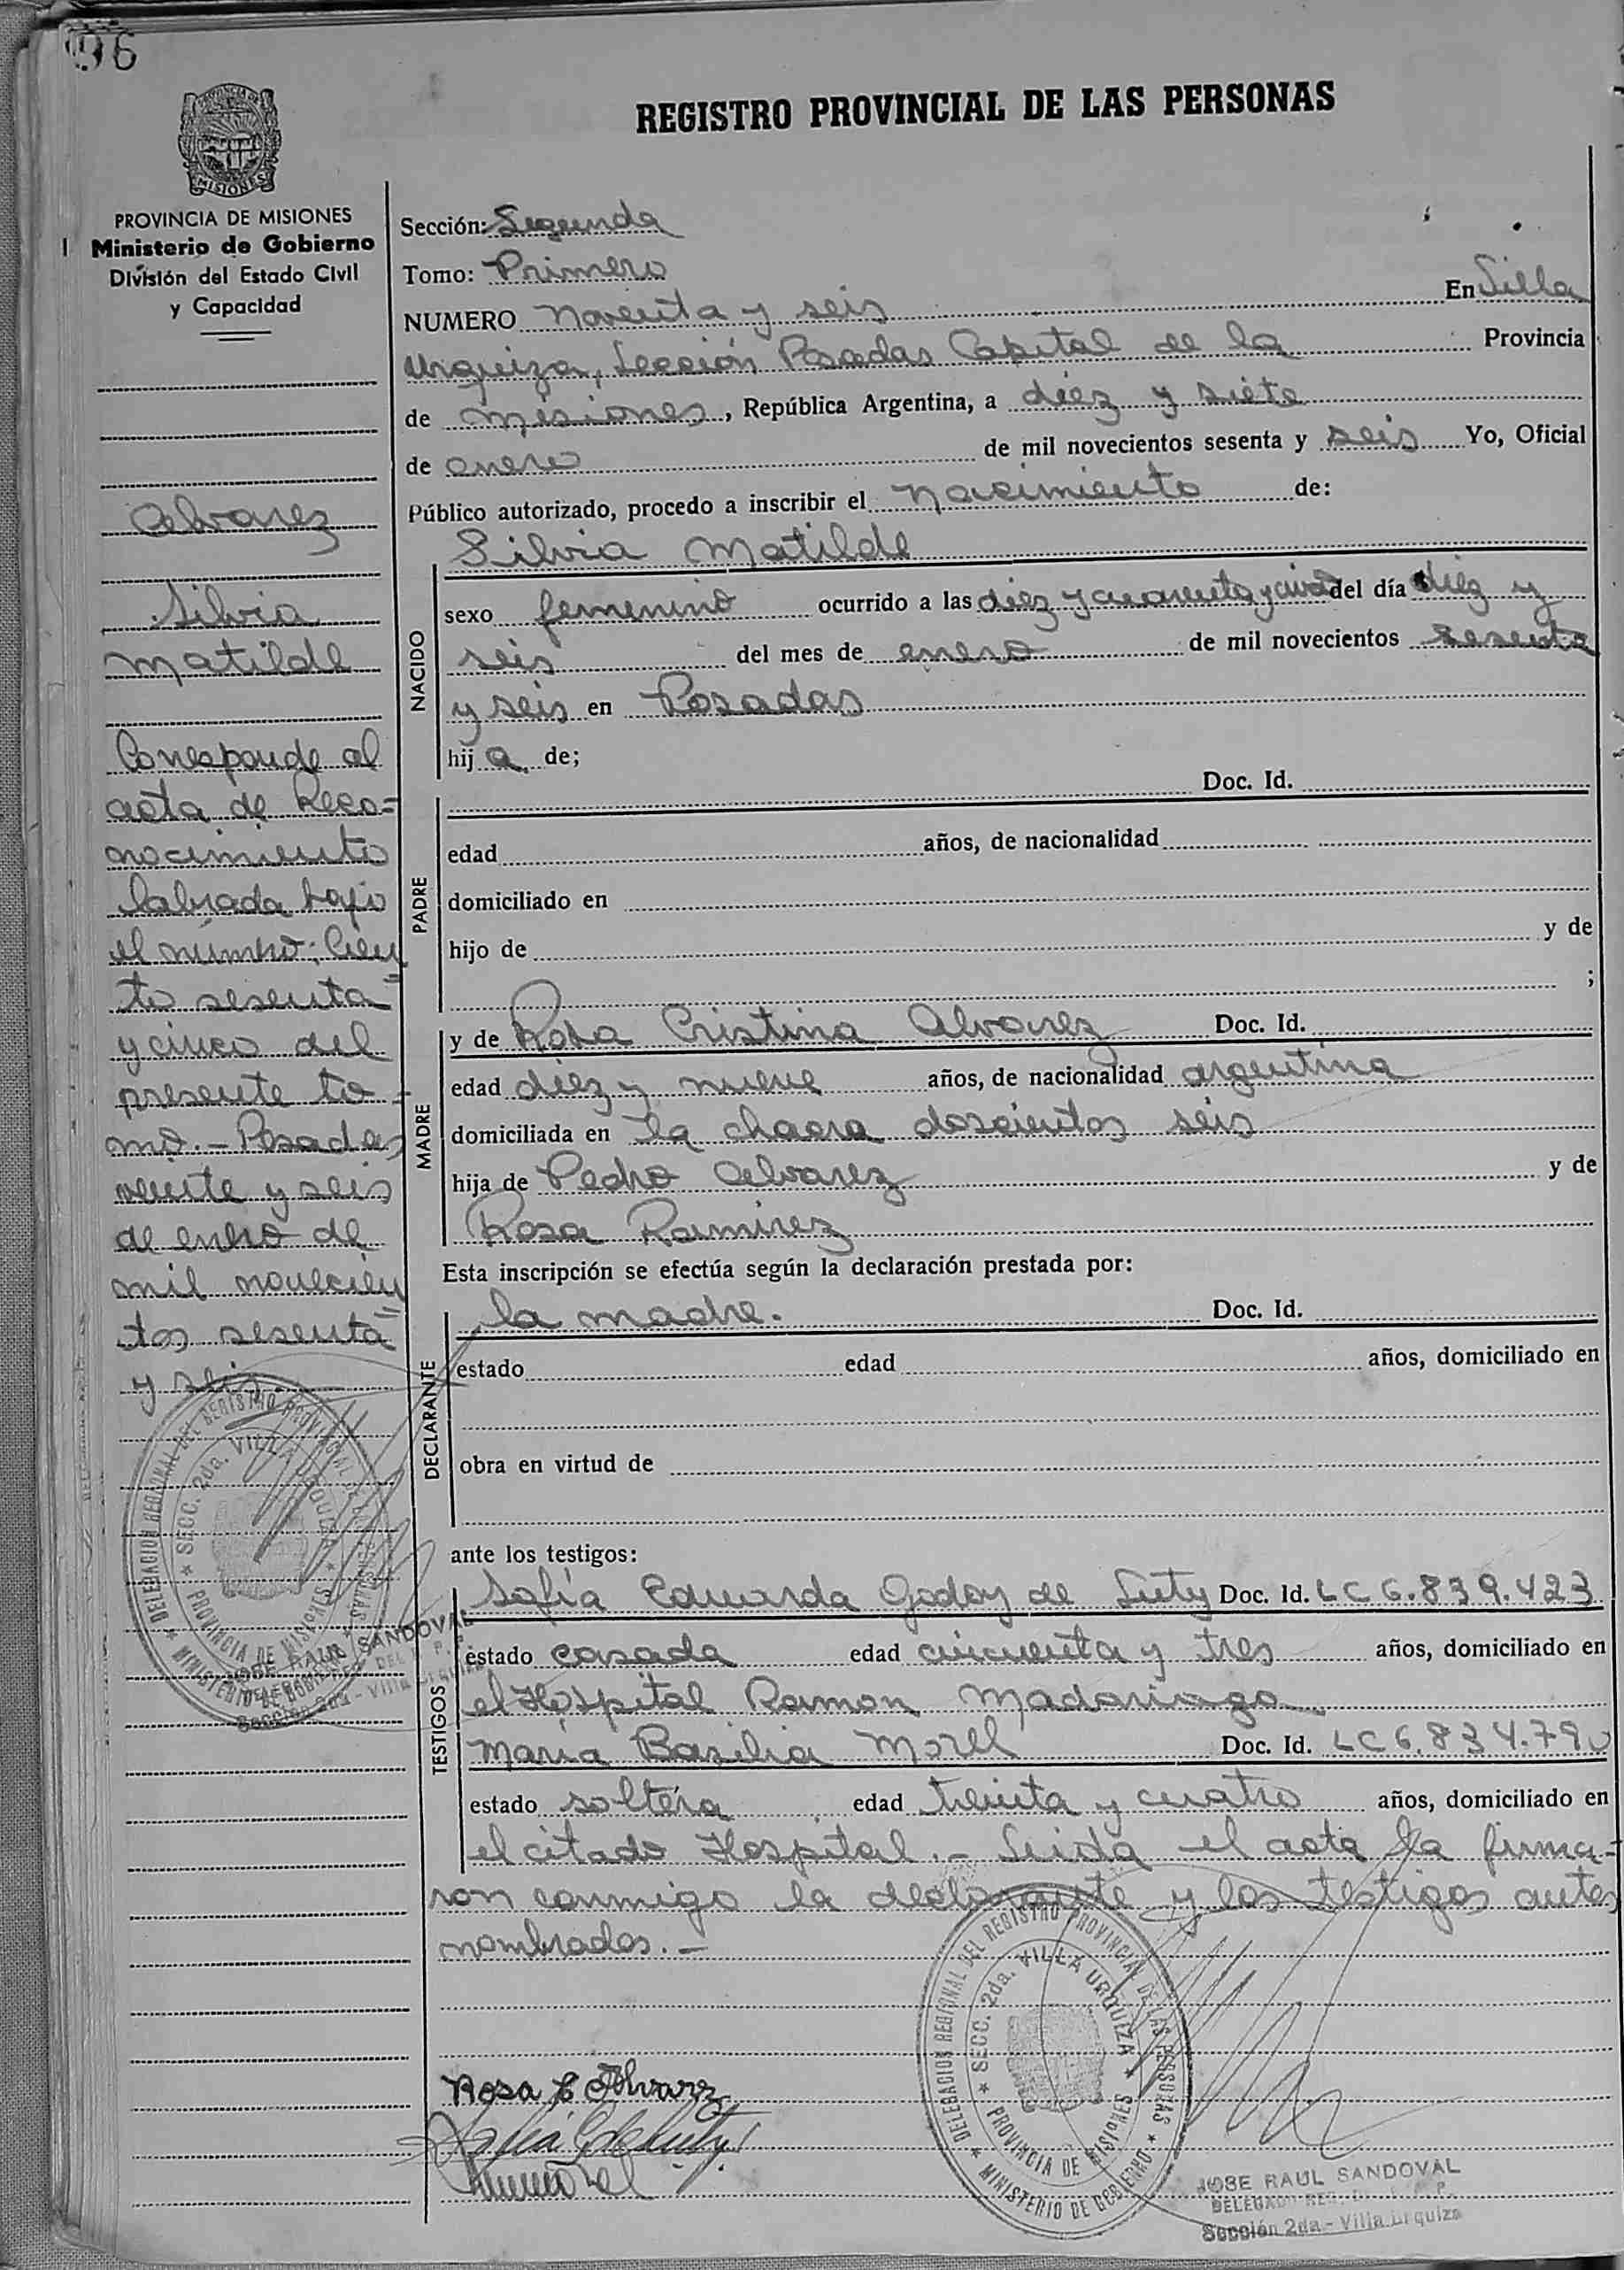 96
REGISTRO PROVINCIAL DE LAS PERSONAS
PROVINCIA DE MISIONES
Ministerio de Gobierno
División del Estado Civil
y Capacidad
Alvarez
Silvia
Matilde
Corresponde al
acta de Reco=
nocimiento
labrada bajo
el número: Cien
to sesenta
y cinco del
presente to=
mo.- Posadas,
veinte y seis
de enero de
mil novecien
tos sesenta
y seis.
Sección: Segunda
Tomo: Primero
NUMERO Noventa y seis En Villa
Urquiza, Sección Posadas Capital de la Provincia
de Misiones, República Argentina, a diez y siete
de enero de mil novecientos sesenta y seis Yo, Oficial
Público autorizado, procedo a inscribir el Nacimiento de:
Silvia Matilde
NACIDO
sexo femenino ocurrido a las diez y cuarenta y cinco del día diez y
seis del mes de enero de mil novecientos sesenta
y seis en Posadas
hija de;
PADRE
Doc. Id.
edad años, de nacionalidad
domiciliado en
hijo de y de
;
MADRE
y de Rosa Cristina Alvarez Doc. Id.
edad diez y nueve años, de nacionalidad argentina
domiciliada en la chacra doscientos seis
hija de Pedro Alvarez y de
Rosa Ramirez
Esta inscripción se efectúa según la declaración prestada por:
DECLARANTE
la madre. Doc. Id.
estado edad años, domiciliado en
obra en virtud de
ante los testigos:
TESTIGOS
Sofía Eduarda Godoy de Luty Doc. Id. LC 6.839.423
estado casada edad cincuenta y tres años, domiciliado en
el Hospital Ramon Madariaga
María Basilia Morel Doc. Id. LC 6.834.790
estado soltera edad treinta y cuatro años, domiciliado en
el citado Hospital.- Leida el acta la firma=
ron conmigo la declarante y los testigos antes
nombrados.-
Rosa C Alvarez
DELEGACION REGIONAL DEL REGISTRO PROVINCIAL DE LAS PERSONAS
SECC. 2da. VILLA URQUIZA
PROVINCIA DE MISIONES
MINISTERIO DE GOBIERNO
JOSE RAUL SANDOVAL
Sección 2da - Villa Urquiza
DELEGACION REGIONAL DEL REGISTRO PROVINCIAL DE LAS PERSONAS
SECC. 2da. VILLA URQUIZA
PROVINCIA DE MISIONES
MINISTERIO DE GOBIERNO
JOSE RAUL SANDOVAL
Sección 2da - Villa Urquiza